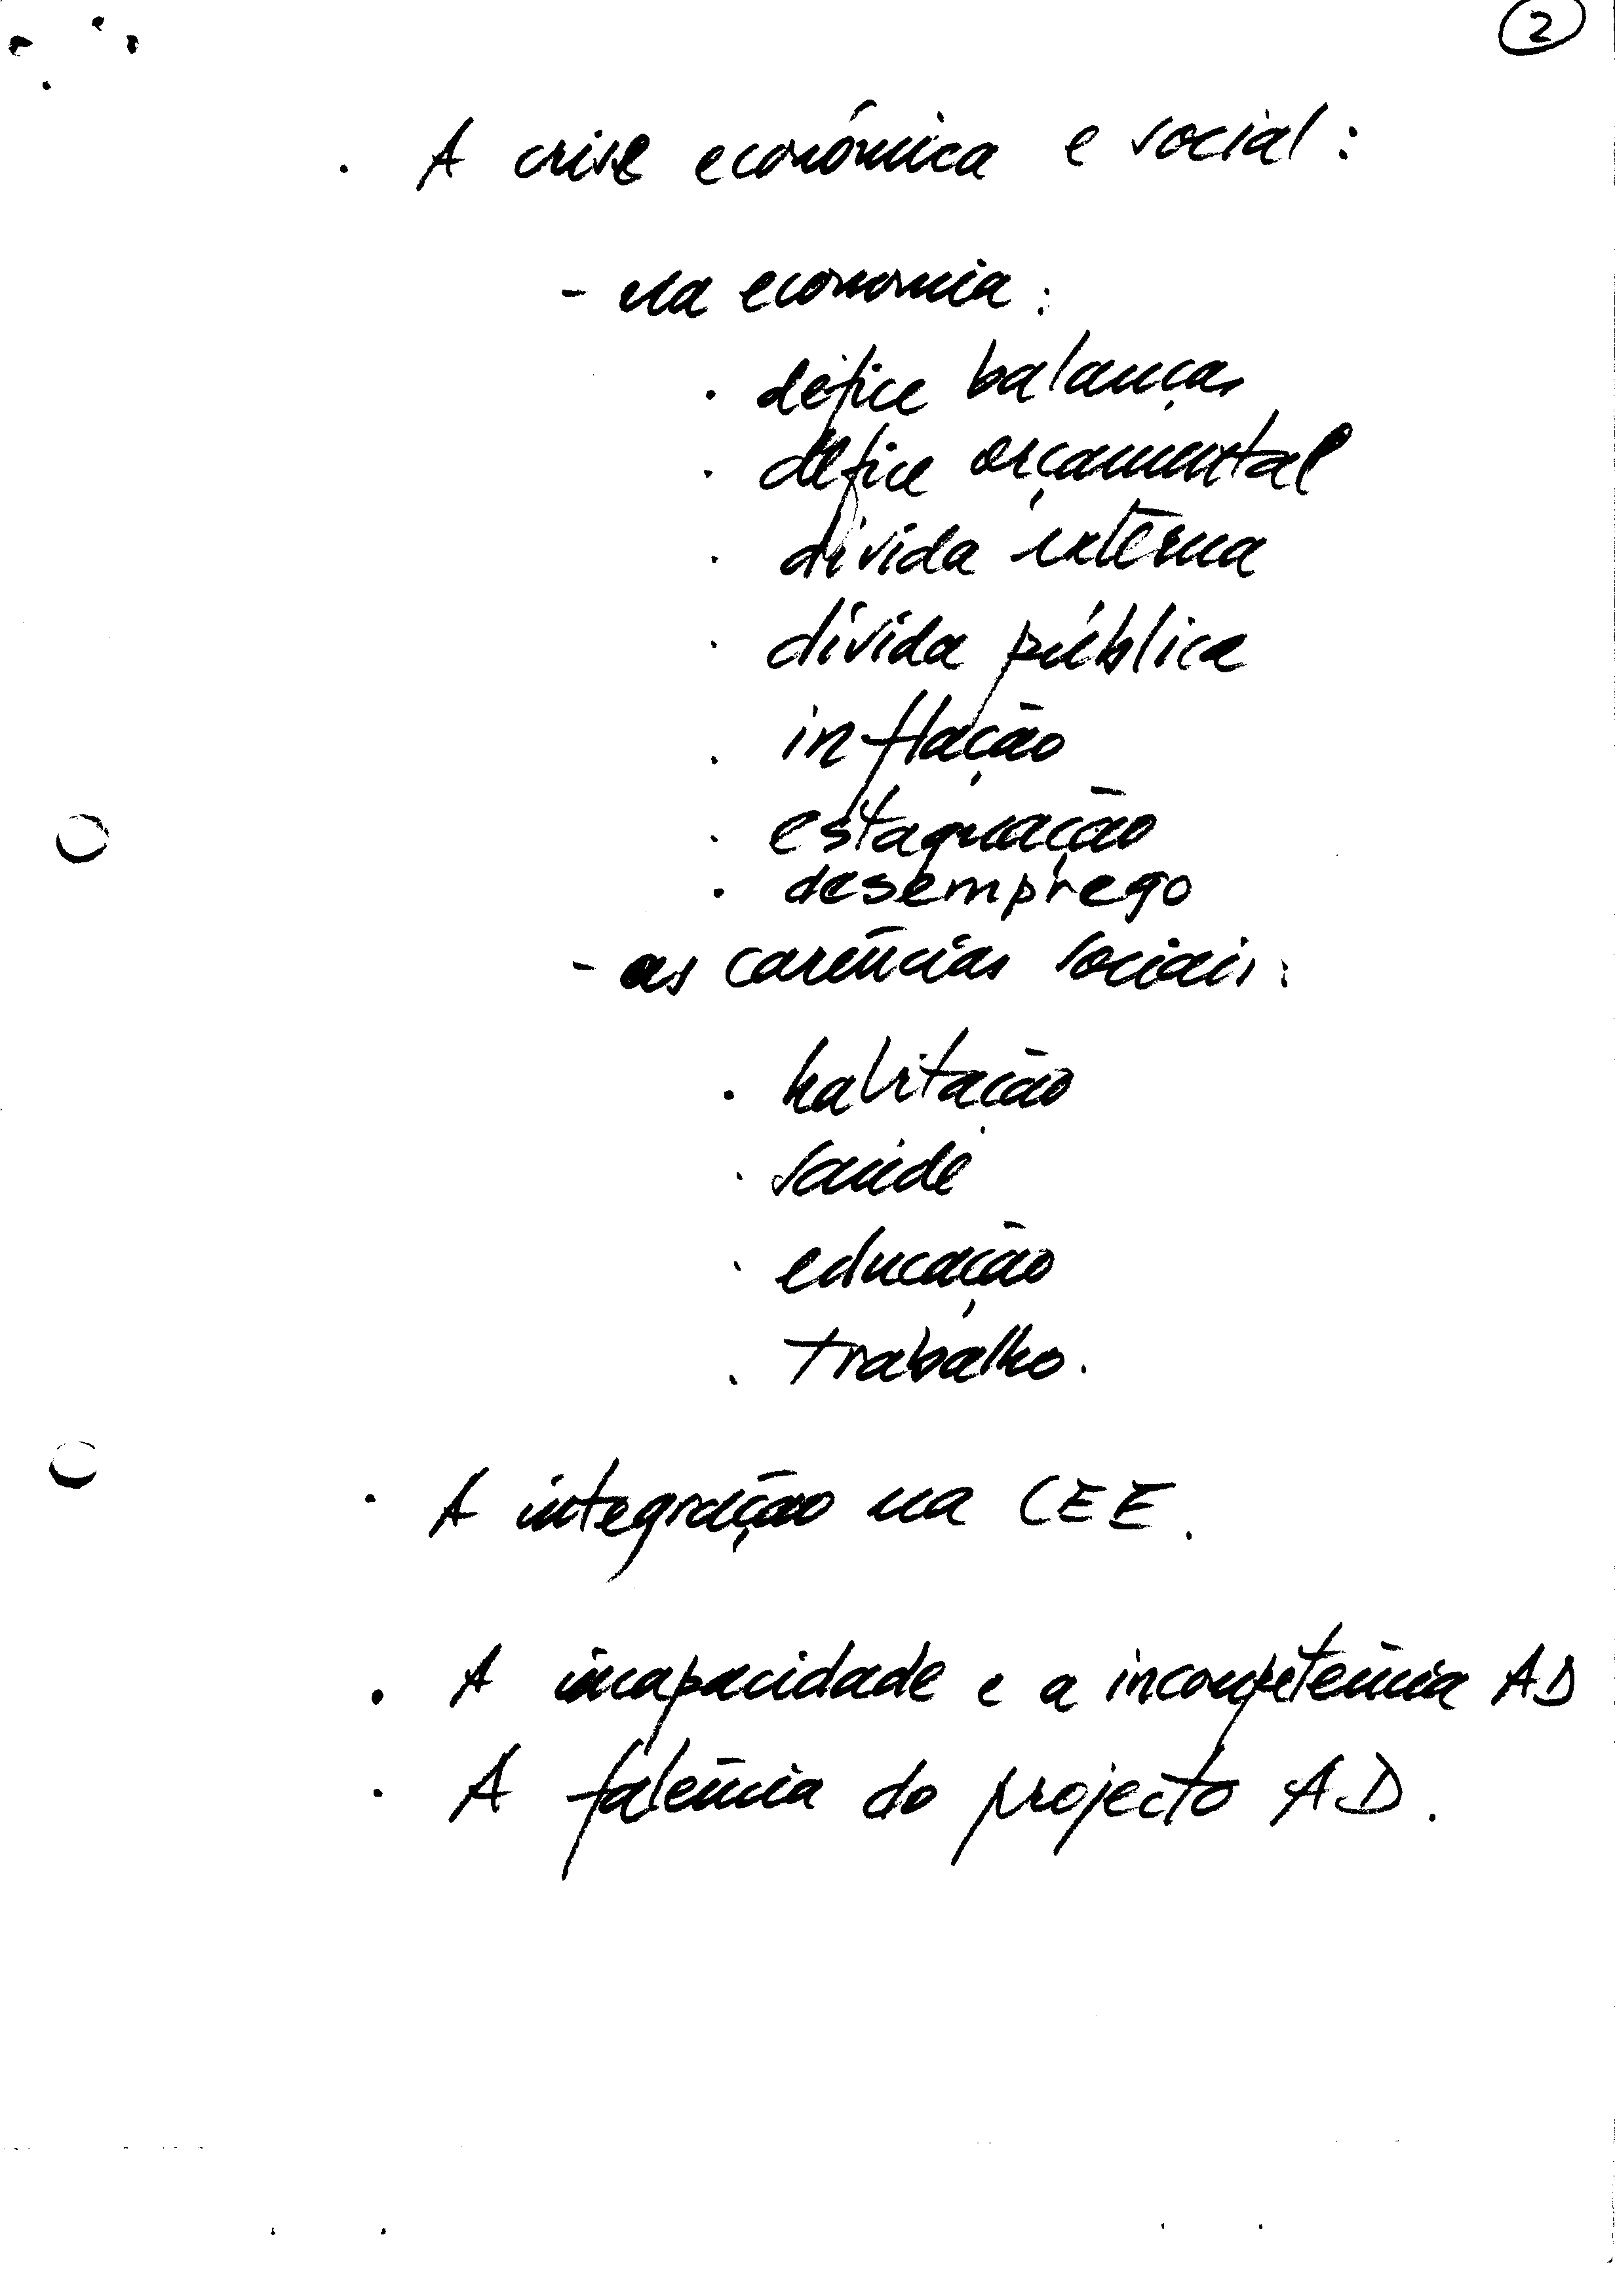 2
. A crise económica e social :
- na economia :
. défice balanças
. défice orçamental
. dívida externa
. dívida pública
. inflação
. estagnação
. desemprego
- as carências sociais :
. habitação
. saúde
. educação
. trabalho.
. A integração na CEE.
. A incapacidade e a incompetência AD
. A falência do projecto AD.